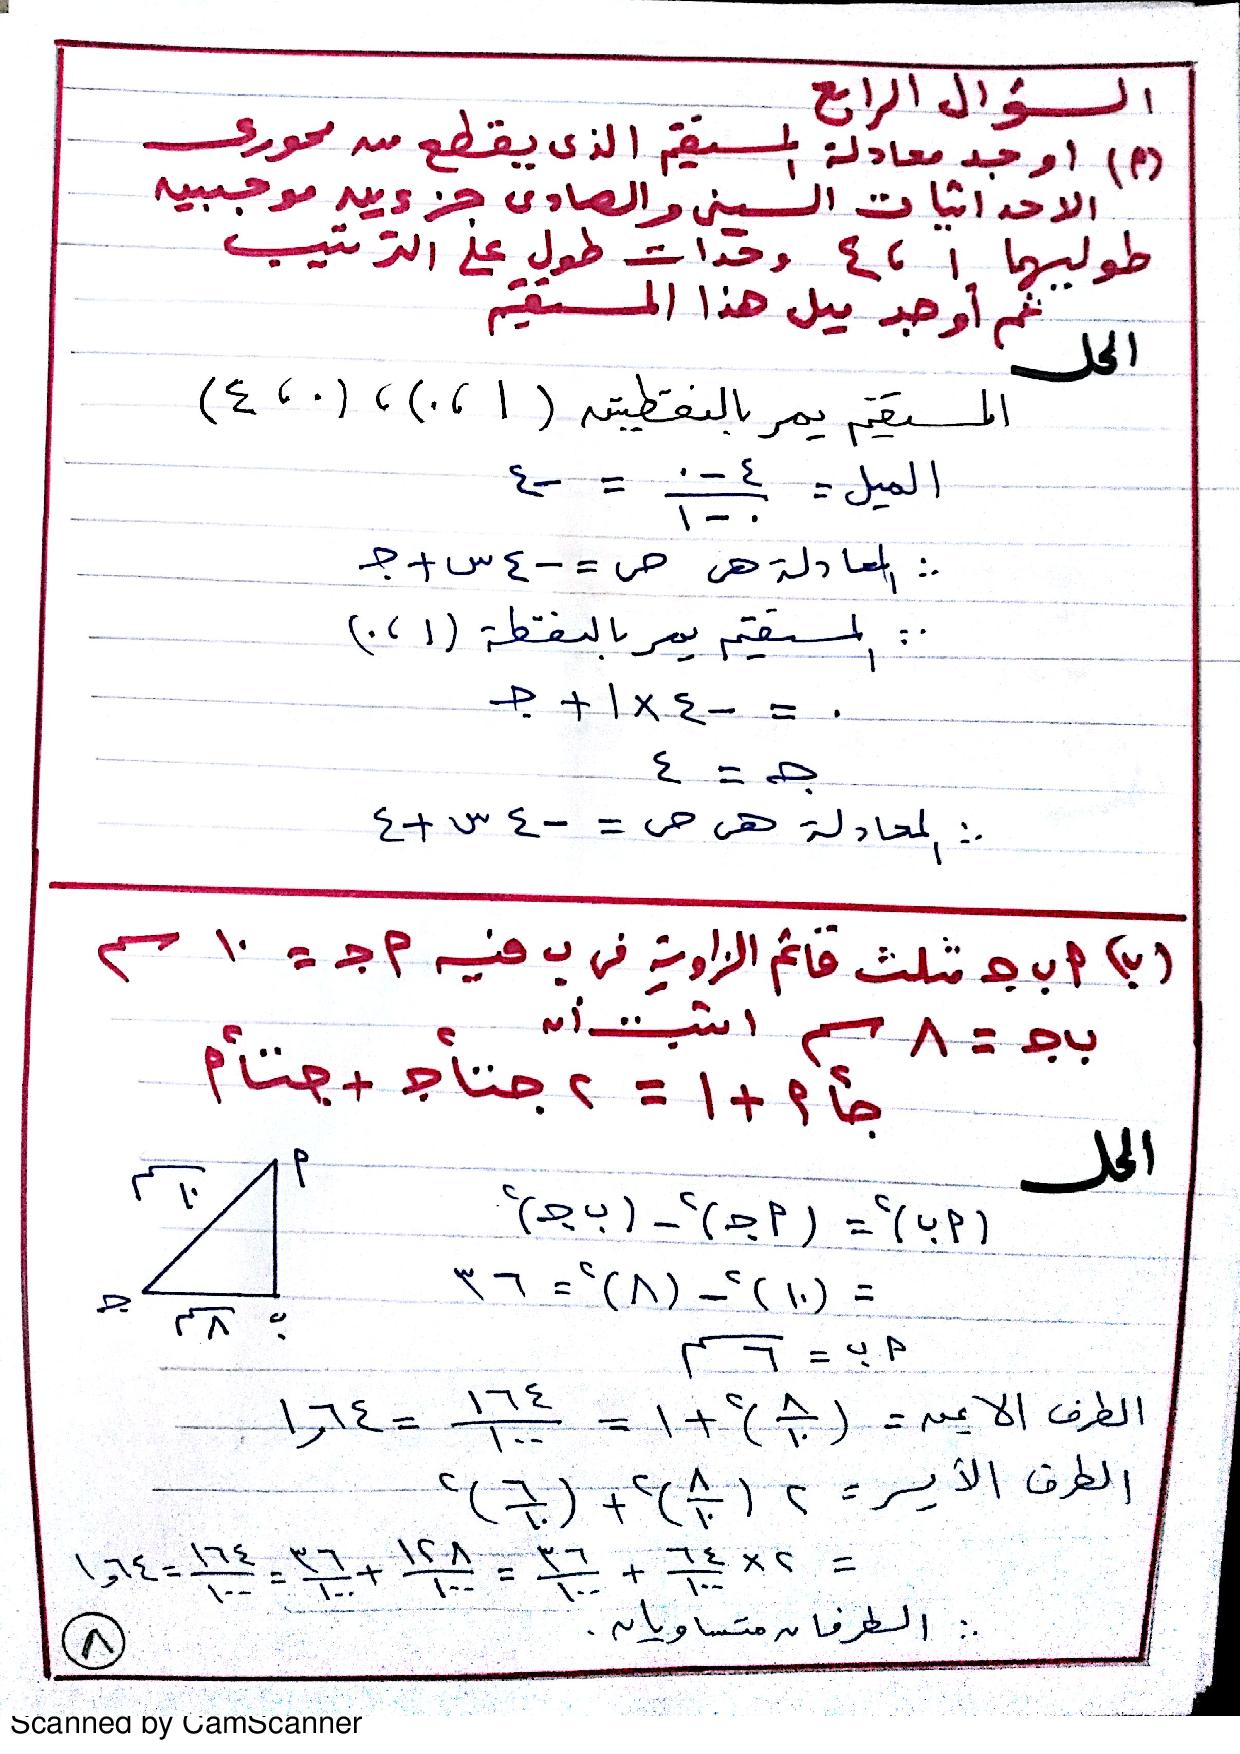 السؤال الرابع
(أ) اوجد معادلة المستقيم الذى يقطع من محورى
الاحداثيات السينى والصادى جزءيين موجبين
طوليهما ١ ، ٤ وحدات طول على الترتيب
ثم أوجد ميل هذا المستقيم
الحل
المستقيم يمر بالنقطتين (١ ، ٠) ، (٠ ، ٤)
الميل = (٤ - ٠)/(٠ - ١) = -٤
∴ المعادلة هى ص = -٤ س + جـ
∵ المستقيم يمر بالنقطة (١ ، ٠)
٠ = -٤ × ١ + جـ
جـ = ٤
∴ المعادلة هى ص = -٤ س + ٤
(ب) أ ب جـ مثلث قائم الزاوية فى ب فيه أ جـ = ١٠ سم
ب جـ = ٨ سم اثبت أن
جا٢ أ + ١ = ٢ جتا٢ جـ + جتا٢ أ
الحل
(أ ب)٢ = (أ جـ)٢ - (ب جـ)٢
= (١٠)٢ - (٨)٢ = ٣٦
أ ب = ٦ سم
أ
١٠ سم
جـ
٨ سم
ب
الطرف الايمن = (٨/١٠)٢ + ١ = ١٦٤/١٠٠ = ١,٦٤
الطرف الأيسر = ٢ (٨/١٠)٢ + (٦/١٠)٢
= ٢ × ٦٤/١٠٠ + ٣٦/١٠٠ = ١٢٨/١٠٠ + ٣٦/١٠٠ = ١٦٤/١٠٠ = ١,٦٤
∴ الطرفان متساويان .
٨
Scanned by CamScanner